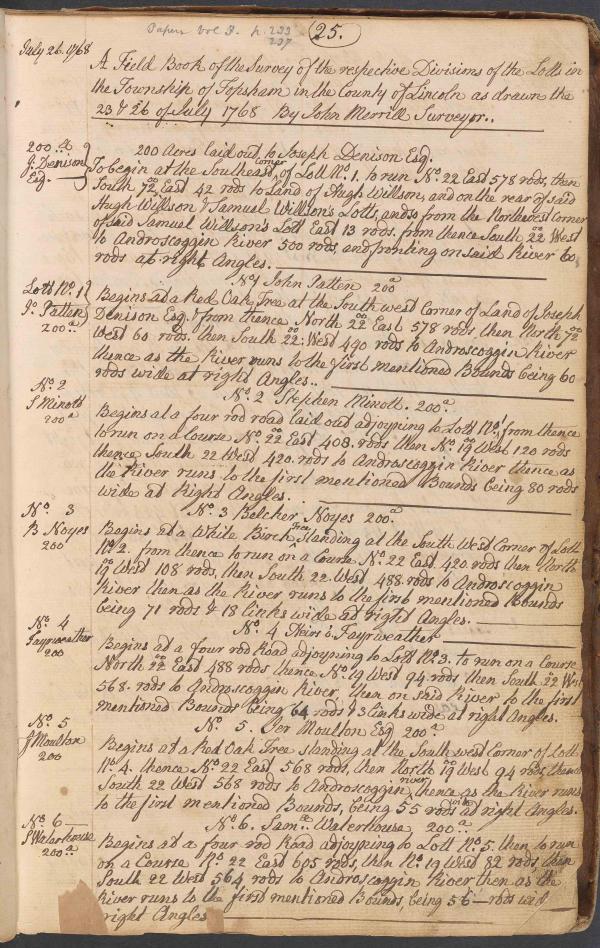 Papers Vol 8. p. 233
237
25.
July 26. 1768
A Field Book of the Survey of the respective Divisions of the Lotts in
the Township of Topsham in the County of Lincoln as drawn the
23 & 26 of July 1768 By John Merrill Surveyor..
200 a
J. Denison
Esq.
200 Acres laid out to Joseph Denison Esq.
To begin at the Southeast corner of Lott No. 1. to run No. 22 East 578 rods, then
South 72 East 42 rods to Land of Hugh Willson, and on the rear of said
Hugh Willson & Samuel Willson's Lotts, and so from the Northwest Corner
of said Samuel Willson's Lott East 13 rods. from thence South 22 West
to Androscoggin River 500 rods, and fronting on said River 60
rods at right Angles.
Lott No. 1
Jo. Patten
200 a
No 1 John Patten 200 a
Begins at a Red Oak Tree at the South west Corner of Land of Joseph
Denison Esq. & from thence North 22 East 578 rods then North 72
West 60 rods. then South 22 West 440 rods to Androscoggin River
thence as the River runs to the first mentioned Bounds being 60
rods wide at right Angles..
No. 2
S Minott
200 a
No. 2 Stephen Minott. 200 a
Begins at a four rod road laid out adjoyning to Lott No. 1 from thence
to run on a Course No. 22 East 408. rods then No. 19 West 120 rods
thence South 22 West 420. rods to Androscoggin River thence as
the River runs to the first mentioned Bounds being 80 rods
wide at Right Angles.
No. 3
B Noyes
200
No. 3 Belcher Noyes 200 a
Begins at a White Birch Tree standing at the South West Corner of Lott
No. 2. from thence to run on a Course No. 22 East 420 rods then North
19 West 108 rods, then South 22 West 488 rods to Androscoggin
River then as the River runs to the first mentioned Bounds
being 71 rods & 18 links wide at right Angles.
No. 4
Fayrweather
200
No. 4 Heirs o. Fayrweather
Begins at a four rod Road adjoyning to Lott No. 3. to run on a Course
North 22 East 488 rods thence No. 19 West 94 rods then South 22 West
568. rods to Androscoggin River, then on said River to the first
mentioned Bounds being 64 rods & 3 links wide at right Angles.
No. 5
J Moulton
200
No. 5. Jer Moulton Esq 200 a
Begins at a Red Oak Tree standing at the South west Corner of Lott
No. 4. thence No. 22 East 568 rods, then North 19 West 94 rods, thence
South 22 West 568 rods to Androscoggin river, thence as the River runs
to the first mentioned Bounds, being 55 rods wide at right Angles.
No. 6
S Waterhouse
200 a
No. 6. Sam. Waterhouse 200 a
Begins at a four rod Road adjoyning to Lott No. 5. then to run
on a Course No. 22 East 605 rods, then No. 19 West 82 rods, then
South 22 West 564 rods to Androscoggin River then as the
River runs to the first mentioned Bounds, being 56 rods wid
right Angles